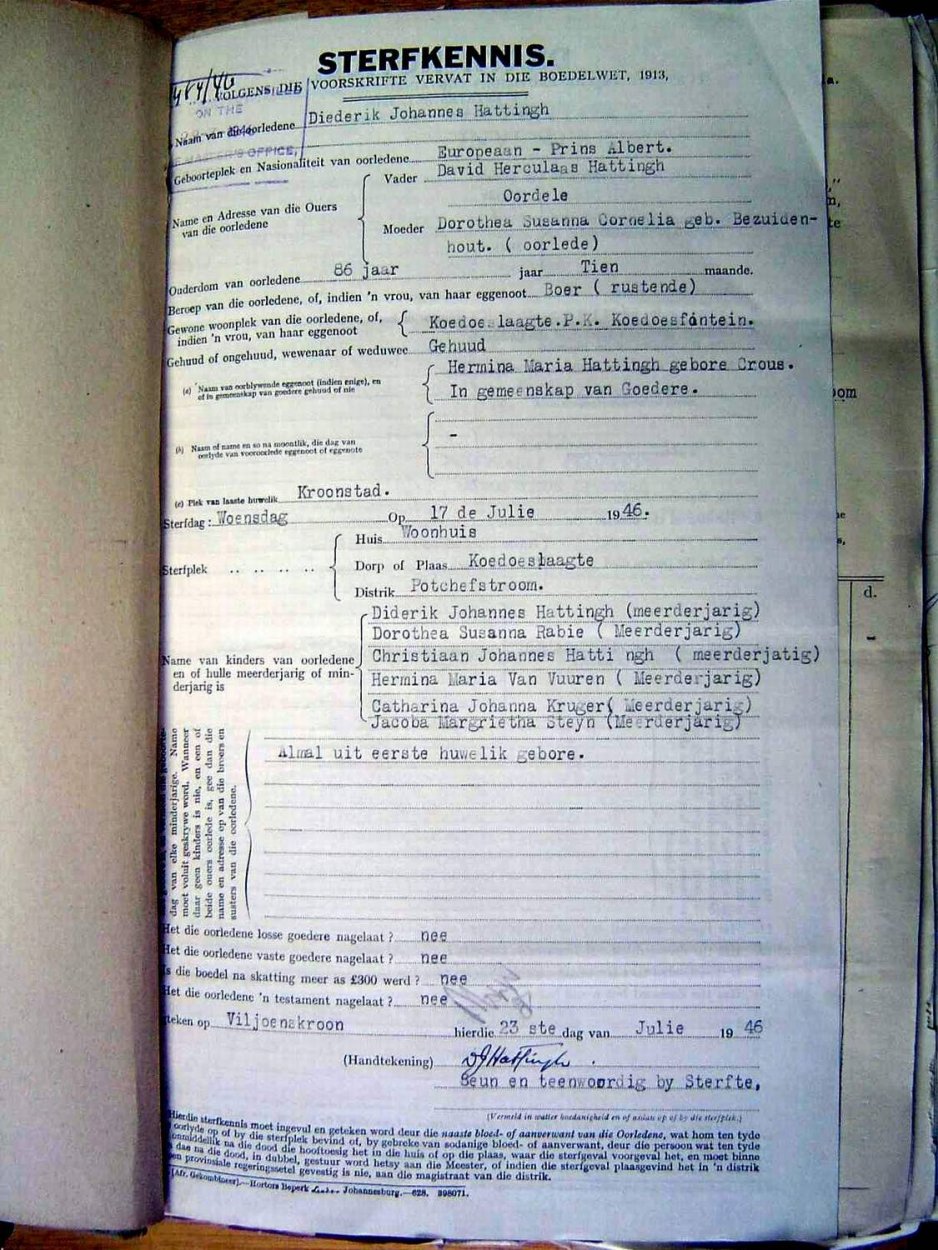 STERFKENNIS.
VOLGENS DIE VOORSKRIFTE VERVAT IN DIE BOEDELWET, 1913,
ON THE
Naam van die oorledene Diederik Johannes Hattingh
1946
MASTER'S OFFICE,
Geboorteplek en Nasionaliteit van oorledene Europeaan - Prins Albert.
Name en Adresse van die Ouers van die oorledene
Vader David Herculaas Hattingh
Oordele
Moeder Dorothea Susanna Cornelia geb. Bezuiden-
hout. ( oorlede)
Ouderdom van oorledene 86 jaar jaar Tien maande.
Beroep van die oorledene, of, indien 'n vrou, van haar eggenoot Boer ( rustende)
Gewone woonplek van die oorledene, of, indien 'n vrou, van haar eggenoot Koedoeslaagte.P.K. Koedoesfontein.
Gehuud of ongehuud, wewenaar of weduwee Gehuud
(a) Naam van oorblywende eggenoot (indien enige), en of in gemeenskap van goedere gehuud of nie
Hermina Maria Hattingh gebore Crous.
In gemeenskap van Goedere.
(b) Naam of name en so na moontlik, die dag van oorlyde van vooroorlede eggenoot of eggenote
-
(c) Plek van laaste huwelik Kroonstad.
Sterfdag: Woensdag Op 17 de Julie 1946.
Sterfplek .. .. .. .. ..
Huis Woonhuis
Dorp of Plaas Koedoeslaagte
Distrik Potchefstroom.
Name van kinders van oorledene en of hulle meerderjarig of minderjarig is
Diderik Johannes Hattingh (meerderjarig)
Dorothea Susanna Rabie ( Meerderjarig)
Christiaan Johannes Hatti ngh ( meerderjatig)
Hermina Maria Van Vuuren ( Meerderjarig)
Catharina Johanna Kruger( Meerderjarig)
Jacoba Margrietha Steyn (Meerderjarig)
Almal uit eerste huwelik gebore.
dag van elke minderjarige. Name
moet voluit geskrywe word. Wanneer
daar geen kinders is nie, en een of
beide ouers oorlede is, gee dan die
name en adresse op van die broers en
susters van die oorledene.
Het die oorledene losse goedere nagelaat? nee
Het die oorledene vaste goedere nagelaat? nee
Is die boedel na skatting meer as £300 werd? nee
Het die oorledene 'n testament nagelaat? nee
teken op Viljoenskroon hierdie 23 ste dag van Julie 1946
(Handtekening) DJHattingh.
Seun en teenwoordig by Sterfte,
(Vermeld in watter hoedanigheid en of aanwesig op of by die sterfplek.)
Hierdie sterfkennis moet ingevul en geteken word deur die naaste bloed- of aanverwant van die Oorledene, wat hom ten tyde
oorlyde op of by die sterfplek bevind of, by gebreke van sodanige bloed- of aanverwant, deur die persoon wat ten tyde
onmiddelik na die dood die hooftoesig het in die huis of op die plaas, waar die sterfgeval voorgeval het, en moet binne
dae na die dood, in dubbel, gestuur word hetsy aan die Meester, of indien die sterfgeval plaasgevind het in 'n distrik
en provinsiale regeringssetel gevestig is nie, aan die magistraat van die distrik.
[Afr. Gekombineer].—Hortors Beperk Johannesburg.—628. 398071.
d.